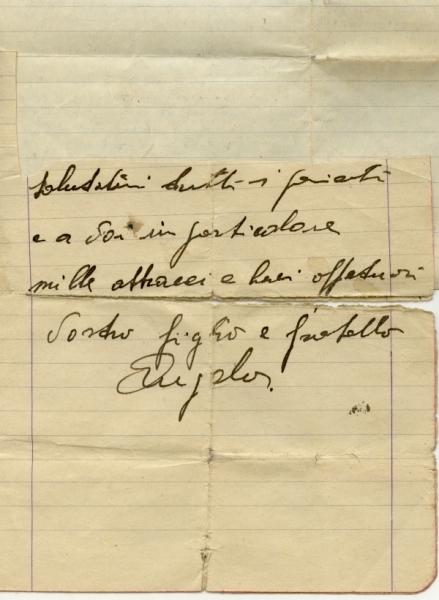 salutatimi tutti i parenti
e a voi in particolare
mille abbracci e baci affettuosi
Vostro figlio e fratello
Angelo.